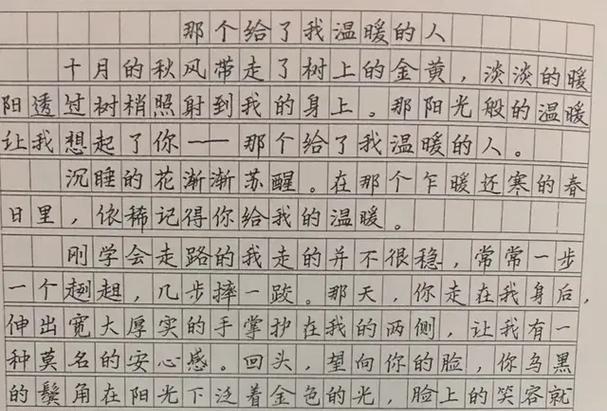 那个给了我温暖的人
十月的秋风带走了树上的金黄，淡淡的暖
阳透过树梢照射到我的身上。那阳光般的温暖
让我想起了你——那个给了我温暖的人。
沉睡的花渐渐苏醒。在那个乍暖还寒的春
日里，依稀记得你给我的温暖。
刚学会走路的我走的并不很稳，常常一步
一个趔趄，几步摔一跤。那天，你走在我身后，
伸出宽大厚实的手掌护在我的两侧，让我有一
种莫名的安心感。回头，望向你的脸，你乌黑
的鬓角在阳光下泛着金色的光，脸上的笑容就